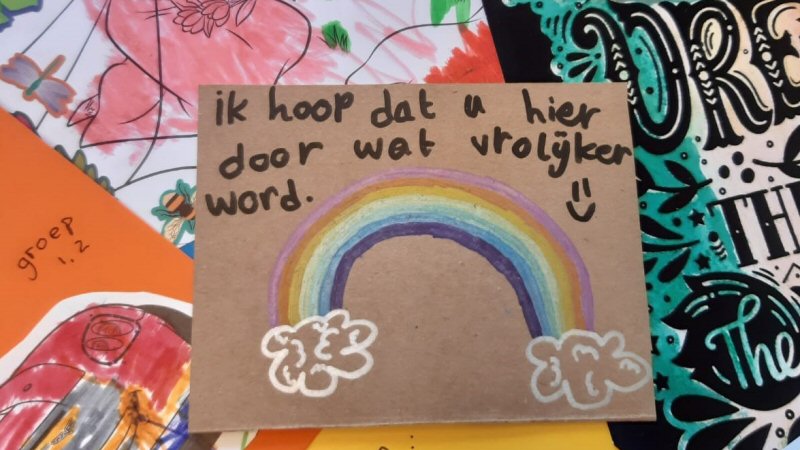 ik hoop dat u hier
door wat vrolijker
word.
groep
1.2
DRE
THE
The